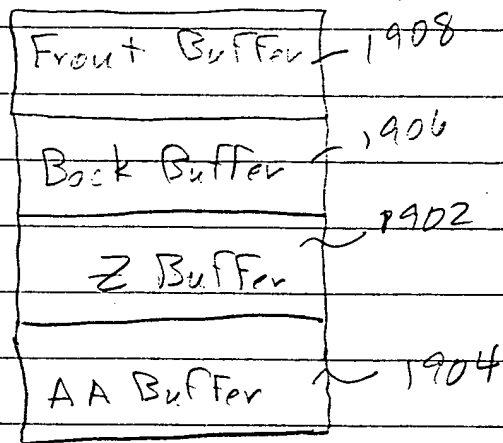 Front Buffer 1908
Back Buffer 1906
Z Buffer 1902
AA Buffer 1904